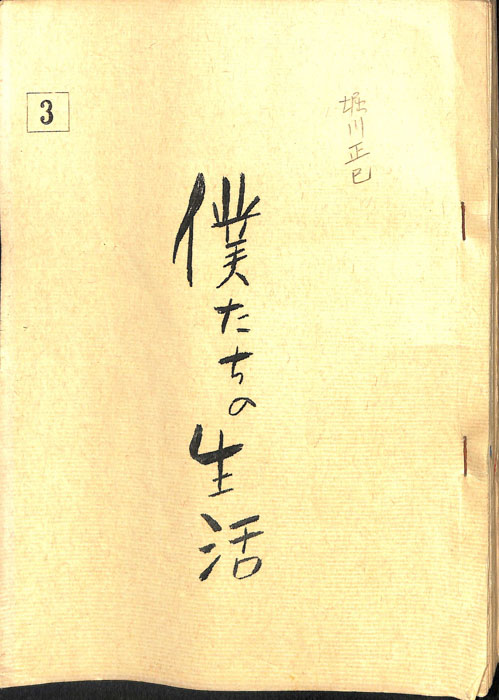 3
堀川正巳
僕たちの生活